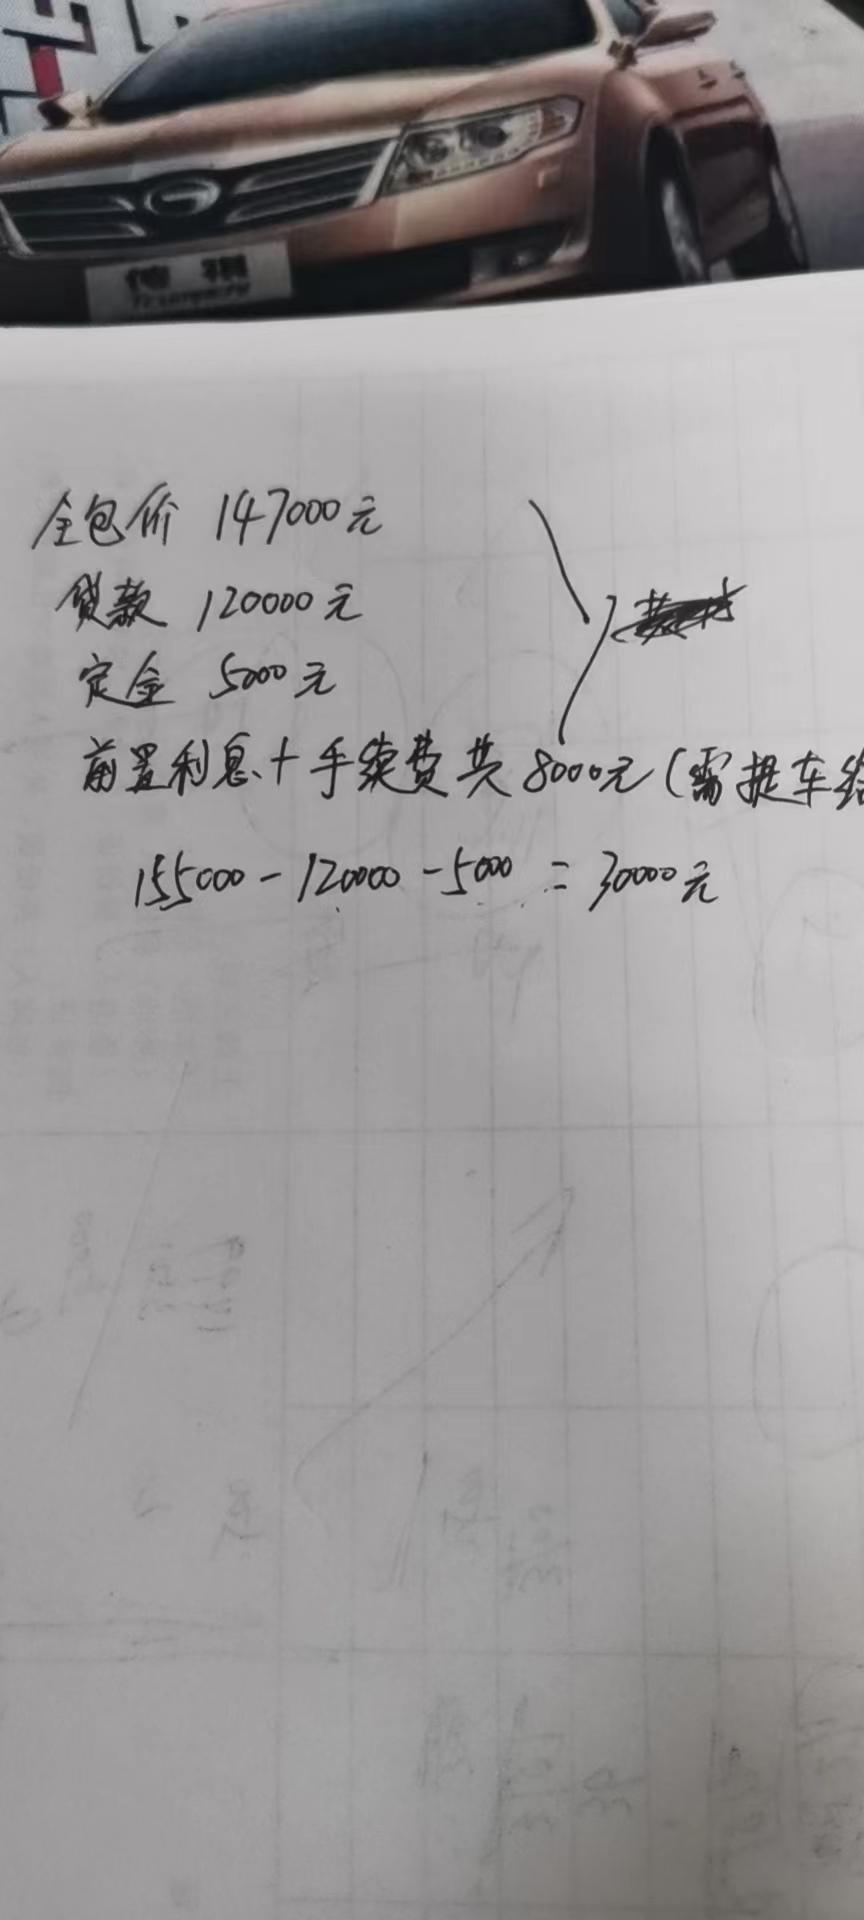 传祺
Trumpchi
全包价 147000元
贷款 120000元
定金 5000元
前置利息+手续费共8000元(需提车给
155000-120000-5000=30000元